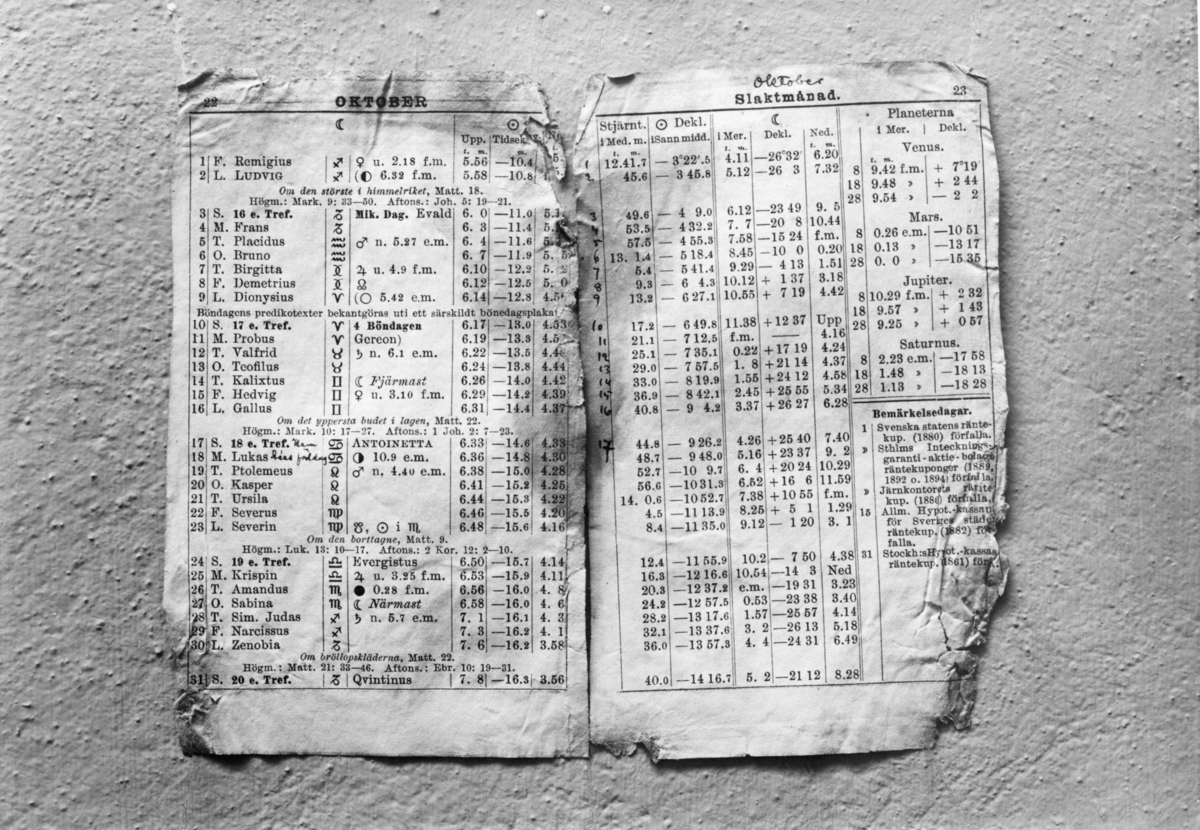 22 OKTOBER
☾ ☉
Upp. Tidsek.
t. m.
1 F. Remigius ♐ ♀ u. 2.18 f.m. 5.56 —10.4
2 L. LUDVIG ♐ (◐ 6.32 f.m. 5.58 —10.8
Om den störste i himmelriket, Matt. 18.
Högm.: Mark. 9: 33—50. Aftons.: Joh. 5: 19—21.
3 S. 16 e. Tref. ♑ Mik. Dag. Evald 6. 0 —11.0
4 M. Frans ♑ 6. 3 —11.4
5 T. Placidus ♒ ♂ n. 5.27 e.m. 6. 4 —11.6
6 O. Bruno ♒ 6. 7 —11.9
7 T. Birgitta ♓ ♃ u. 4.9 f.m. 6.10 —12.2 5. 2
8 F. Demetrius ♓ ☊ 6.12 —12.5 5. 0
9 L. Dionysius ♈ (○ 5.42 e.m. 6.14 —12.8
Böndagens predikotexter bekantgöras uti ett särskildt bönedagsplakat
10 S. 17 e. Tref. ♈ 4 Böndagen 6.17 —13.0 4.53
11 M. Probus ♈ Gereon) 6.19 —13.3
12 T. Valfrid ♉ ♄ n. 6.1 e.m. 6.22 —13.5
13 O. Teofilus ♉ 6.24 —13.8 4.44
14 T. Kalixtus ♊ ☾ Fjärmast 6.26 —14.0 4.42
15 F. Hedvig ♊ ♀ u. 3.10 f.m. 6.29 —14.2 4.39
16 L. Gallus ♊ 6.31 —14.4 4.37
Om det yppersta budet i lagen, Matt. 22.
Högm.: Mark. 10: 17—27. Aftons.: 1 Joh. 2: 7—23.
17 S. 18 e. Tref. ♋ ANTOINETTA 6.33 —14.6 4.33
18 M. Lukas ♋ ◑ 10.9 e.m. 6.36 —14.8 4.30
19 T. Ptolemeus ♌ ♂ n. 4.40 e.m. 6.38 —15.0 4.28
20 O. Kasper ♌ 6.41 —15.2 4.25
21 T. Ursila ♌ 6.44 —15.3 4.22
22 F. Severus ♍ 6.46 —15.5 4.20
23 L. Severin ♍ ☋, ☉ i ♏ 6.48 —15.6 4.16
Om den borttagne, Matt. 9.
Högm.: Luk. 13: 10—17. Aftons.: 2 Kor. 12: 2—10.
24 S. 19 e. Tref. ♎ Evergistus 6.50 —15.7 4.14
25 M. Krispin ♎ ♃ u. 3.25 f.m. 6.53 —15.9 4.11
26 T. Amandus ♏ ● 0.28 f.m. 6.56 —16.0 4. 8
27 O. Sabina ♏ ☾ Närmast 6.58 —16.0 4. 6
28 T. Sim. Judas ♐ ♄ n. 5.7 e.m. 7. 1 —16.1 4. 3
29 F. Narcissus ♐ 7. 3 —16.2 4. 1
30 L. Zenobia ♑ 7. 6 —16.2 3.58
Om bröllopskläderna, Matt. 22.
Högm.: Matt. 21: 33—46. Aftons.: Ebr. 10: 19—31.
31 S. 20 e. Tref. ♑ Qvintinus 7. 8 —16.3 3.56
Oktober
Slaktmånad. 23
Stjärnt. ☉ Dekl. ☾
i Med. m. i Sann midd. i Mer. Dekl. Ned.
t. m. t. m.
1 12.41.7 — 3°22'.5 4.11 —26°32' 6.20
2 45.6 — 3 45.8 5.12 —26 3 7.32
3 49.6 — 4 9.0 6.12 —23 49 9. 5
4 53.5 — 4 32.2 7. 7 —20 8 10.44
5 57.5 — 4 55.3 7.58 —15 24 f.m.
6 13. 1.4 — 5 18.4 8.45 —10 0 0.20
7 5.4 — 5 41.4 9.29 — 4 13 1.51
8 9.3 — 6 4.3 10.12 + 1 37 3.18
9 13.2 — 6 27.1 10.55 + 7 19 4.42
10 17.2 — 6 49.8 11.38 +12 37 Upp
11 21.1 — 7 12.5 f.m. —— 4.16
12 25.1 — 7 35.1 0.22 +17 19 4.24
13 29.0 — 7 57.5 1. 8 +21 14 4.37
14 33.0 — 8 19.9 1.55 +24 12 4.58
15 36.9 — 8 42.1 2.45 +25 55 5.34
16 40.8 — 9 4.2 3.37 +26 27 6.28
17 44.8 — 9 26.2 4.26 +25 40 7.40
48.7 — 9 48.0 5.16 +23 37 9. 2
52.7 —10 9.7 6. 4 +20 24 10.29
56.6 —10 31.3 6.52 +16 6 11.59
14. 0.6 —10 52.7 7.38 +10 55 f.m.
4.5 —11 13.9 8.25 + 5 1 1.29
8.4 —11 35.0 9.12 — 1 20 3. 1
12.4 —11 55.9 10.2 — 7 50 4.38
16.3 —12 16.6 10.54 —14 3 Ned
20.3 —12 37.2 e.m. —19 31 3.23
24.2 —12 57.5 0.53 —23 38 3.40
28.2 —13 17.6 1.57 —25 57 4.14
32.1 —13 37.6 3. 2 —26 13 5.18
36.0 —13 57.3 4. 4 —24 31 6.49
40.0 —14 16.7 5. 2 —21 12 8.28
Planeterna
i Mer. Dekl.
Venus.
t. m.
8 9.42 f.m. + 7°19'
18 9.48 » + 2 44
28 9.54 » — 2 2
Mars.
8 0.26 e.m. —10 51
18 0.13 » —13 17
28 0. 0 » —15 35
Jupiter.
8 10.29 f.m. + 2 32
18 9.57 » + 1 43
28 9.25 » + 0 57
Saturnus.
8 2.23 e.m. —17 58
18 1.48 » —18 13
28 1.13 » —18 28
Bemärkelsedagar.
1 Svenska statens ränte-
kup. (1880) förfalla.
» Sthlms Intecknings-
garanti-aktie-bolags
räntekuponger (1889,
1892 o. 1894) förfalla.
» Järnkontorets ränte-
kup. (1886) förfalla.
15 Allm. Hypot.-kassan
för Sveriges städer
räntekup. (1882) för-
falla.
31 Stockh:s Hypot.-kassas
räntekup. (1861) förf.